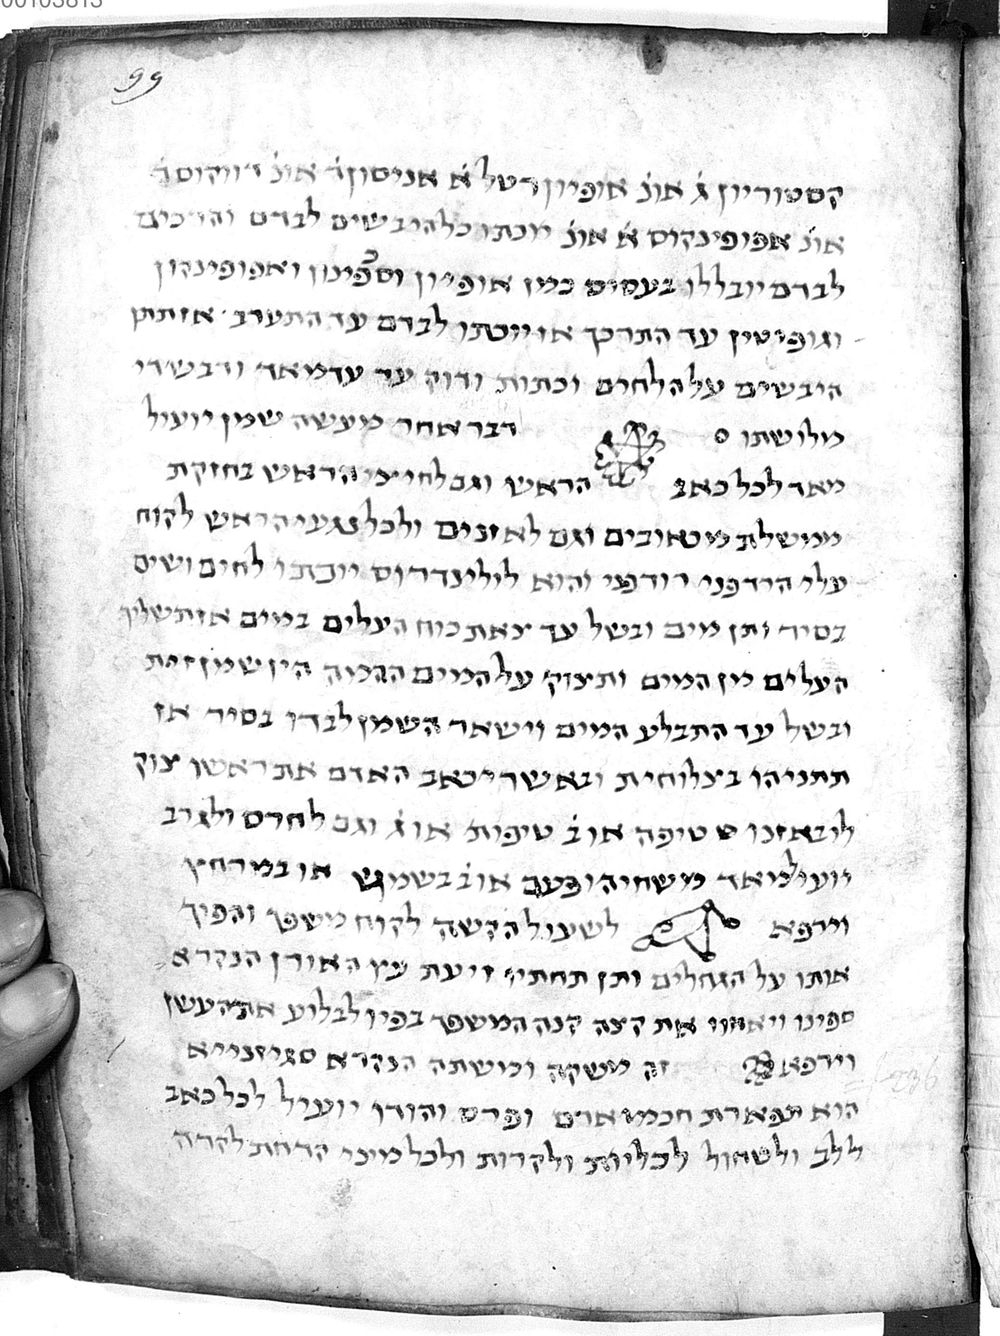 00103813
99
קסטוריון ג̇ אונ̇ אופיון רטל א̇ אניסון ד̇ אונ̇ ז̇ ווקוס ד̇
אונ̇ אפופינקוס א̇ אונ̇ יוכתו כל היבשים לבדם והרכים
לבדם יובללו בעסיס כמן אופיון וספינון ואפופינקון
עד התרכך או ייכתו לבדם עד התערב אז תתן
היבשים על הלחים וכתות ודוק עד עד מאד ודבש די
מלושתו ס דבר אחר מעשה שמן יועיל
מאד לכל כאב הראש וגם לחצי הראש בחזקת
ממשלת מטאובים וגם לאזנים ולכל נגעי הראש לקוח
עלי הרדפני רודפני והוא לולינדרוס יוכתו לחים ושים
בסיר ותן מים ובשל עד צאת כוח העלים במים אז תשליך
העלים מן המים ותיצוק על המים הכמוה הין שמן זית
ובשל עד התבלע המים וישאר השמן לבדו בסיר אז
תתניהו בצלוחית ובאשר יכאב האדם את ראשו יצוק
לו באזנו טיפה או ב̇ טיפות או ג̇ וגם לחרס ולגרב
יועיל מאד משחיהו פעם או ב̇ בשמש או במרחץ
וירפא לשעול הקשה לקוח משפך והפיך
אותו על הגחלים ותן תחתיו זיעת עץ האורן הנקרא
ספינו ויאחוז את קצה קנה המשפך בפיו לבלוע את העשן
וירפא זה משקה ומשתה הנקרא
הוא תפארת חכמי אדם ופרס והודו יועיל לכל כאב
ללב ולטחול לכליות ולקרות ולכל מיני קדחת לקרה